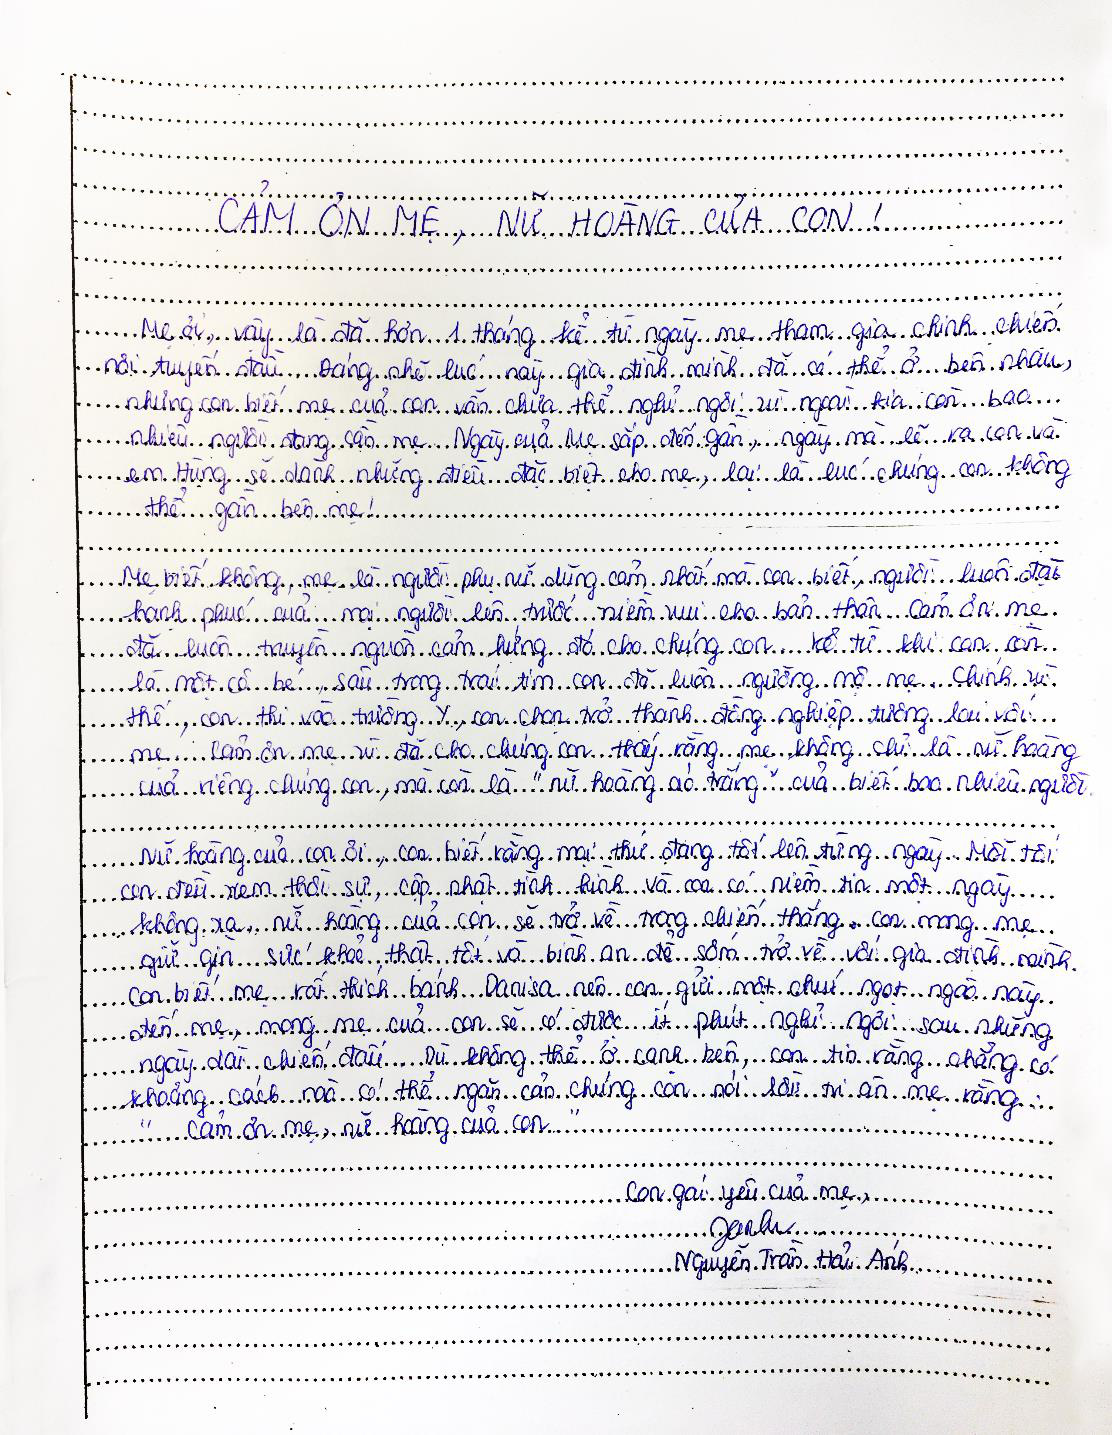 CẢM ƠN MẸ, NỮ HOÀNG CỦA CON!
Mẹ ơi, vậy là đã hơn 1 tháng kể từ ngày mẹ tham gia chinh chiến
nơi tuyến đầu. Đáng nhẽ lúc này gia đình mình đã có thể ở bên nhau,
nhưng con biết mẹ của con vẫn chưa thể nghỉ ngơi vì ngoài kia còn bao
nhiêu người đang cần mẹ. Ngày của Mẹ sắp đến gần, ngày mà lẽ ra con và
em Hưng sẽ dành những điều đặc biệt cho mẹ, lại là lúc chúng con không
thể gần bên mẹ!
Mẹ biết không, mẹ là người phụ nữ dũng cảm nhất mà con biết, người luôn đặt
hạnh phúc của mọi người lên trước niềm vui cho bản thân. Cảm ơn mẹ
đã luôn truyền nguồn cảm hứng đó cho chúng con. Kể từ khi con còn
là một cô bé, sâu trong trái tim con đã luôn ngưỡng mộ mẹ. Chính vì
thế, con thi vào trường Y, con chọn trở thành đồng nghiệp tương lai với
mẹ. Cảm ơn mẹ vì đã cho chúng con thấy rằng mẹ không chỉ là nữ hoàng
của riêng chúng con, mà còn là "nữ hoàng áo trắng" của biết bao nhiêu người.
Nữ hoàng của con ơi, con biết rằng mọi thứ đang tốt lên từng ngày. Mỗi tối
con đều xem thời sự, cập nhật tình hình và con có niềm tin một ngày
không xa, nữ hoàng của con sẽ trở về trong chiến thắng. Con mong mẹ
giữ gìn sức khoẻ thật tốt và bình an để sớm trở về với gia đình mình.
Con biết mẹ rất thích bánh Danisa nên con gửi một chút ngọt ngào này
đến mẹ, mong mẹ của con sẽ có được ít phút nghỉ ngơi sau những
ngày dài chiến đấu. Dù không thể ở cạnh bên, con tin rằng chẳng có
khoảng cách nào có thể ngăn cản chúng con nói lời tri ân mẹ rằng:
"Cảm ơn mẹ, nữ hoàng của con"
Con gái yêu của mẹ,
Nguyễn Trần Hải Anh